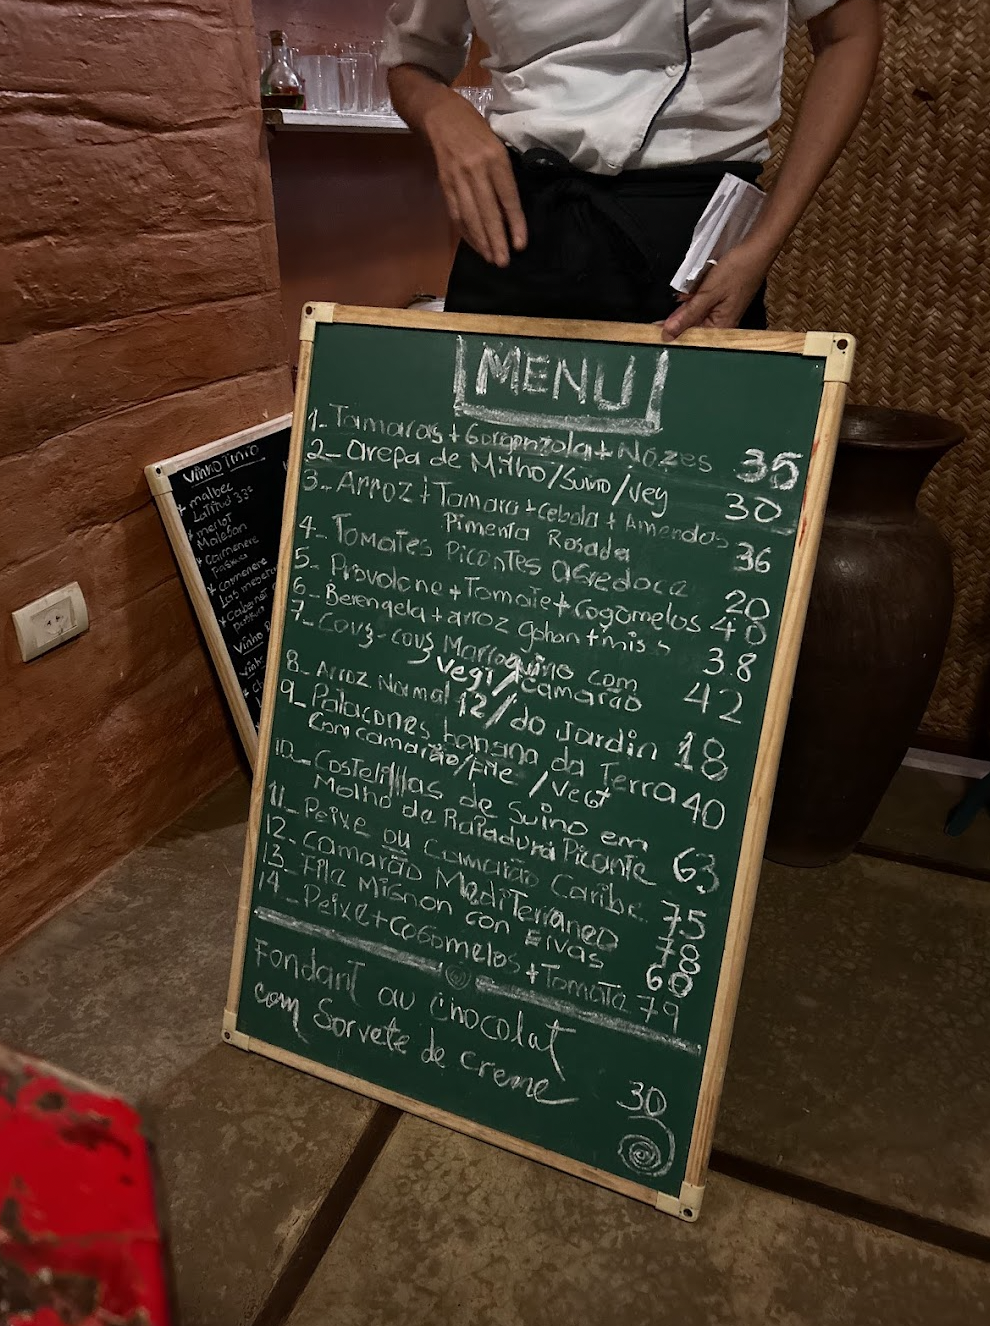 MENU
1- Tamaras + Gorgonzola + Nozes 35
2- Arepa de Milho/Suino/vey 30
3- Arroz + Tamara + cebola + Amendoas
Pimenta Rosada 36
4- Tomates Picantes agredoce 20
5- Provolone + Tomate + Cogomelos 40
6- Berengela + arroz gohan + miss 38
7- Couz-couz Marroquino com
Vegi/camarão 42
8- Arroz Normal 12/do Jardin 18
9- Patacones banana da Terra 40
com camarão/file/vegt
10- Costelillas de Suino em
Molho de Rapadura Picante 63
11- Peixe ou Camarão Caribe 75
12- Camarão MediTerraneo 78
13- File Mignon con Ervas 68
14- Peixe + Cogomelos + Tomate 79
Fondant au chocolat
com Sorvete de creme
30
Vinho Tinto
malbec
Latitud 33°
merlot
Carmenere
Carmenere
Cabernet
Vinho